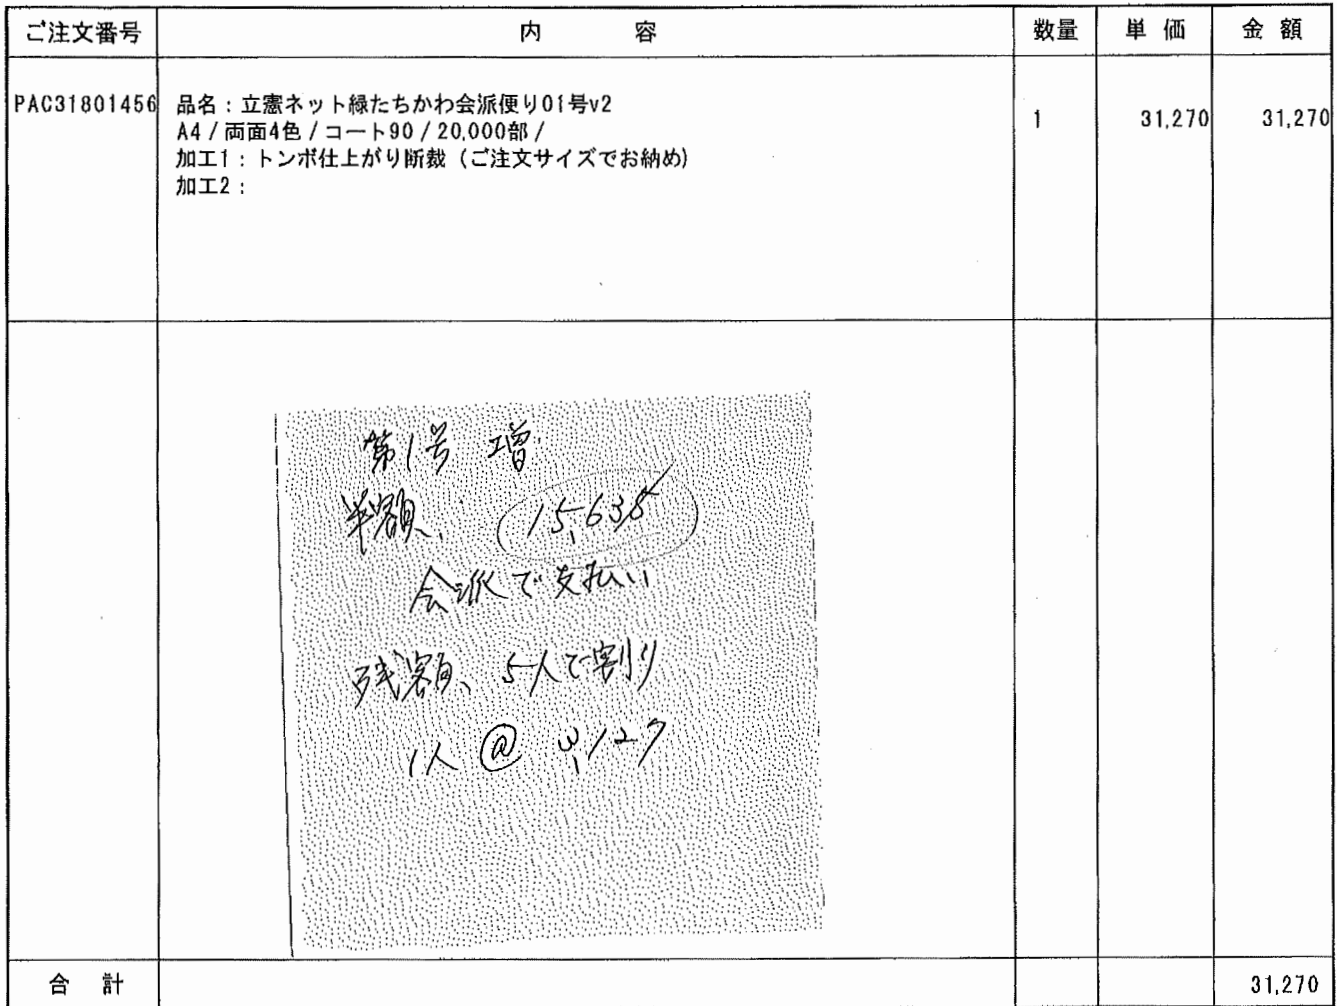 ご注文番号 内容 数量 単価 金額
PAC31801456 品名：立憲ネット緑たちかわ会派便り01号v2 1 31,270 31,270
A4 / 両面4色 / コート90 / 20,000部 /
加工1：トンボ仕上がり断裁（ご注文サイズでお納め）
加工2：
第1号 増
半額、 15,635
会派で支払い
残額、5人で割り
1人 @ 3,127
合計 31,270